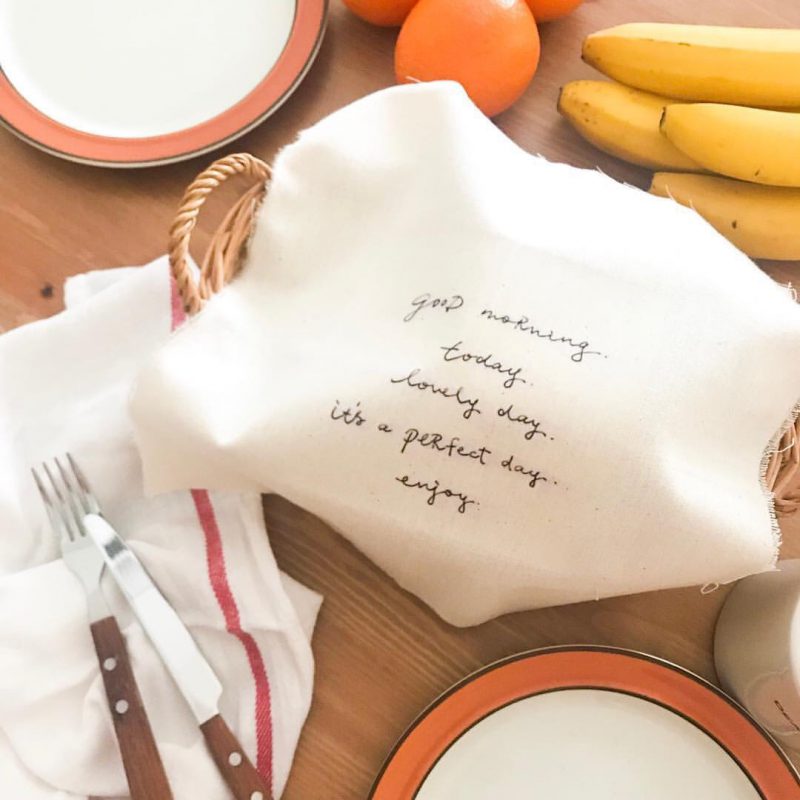 gooD moRning.
today.
lovely day.
it's a peRfect day.
enjoy.